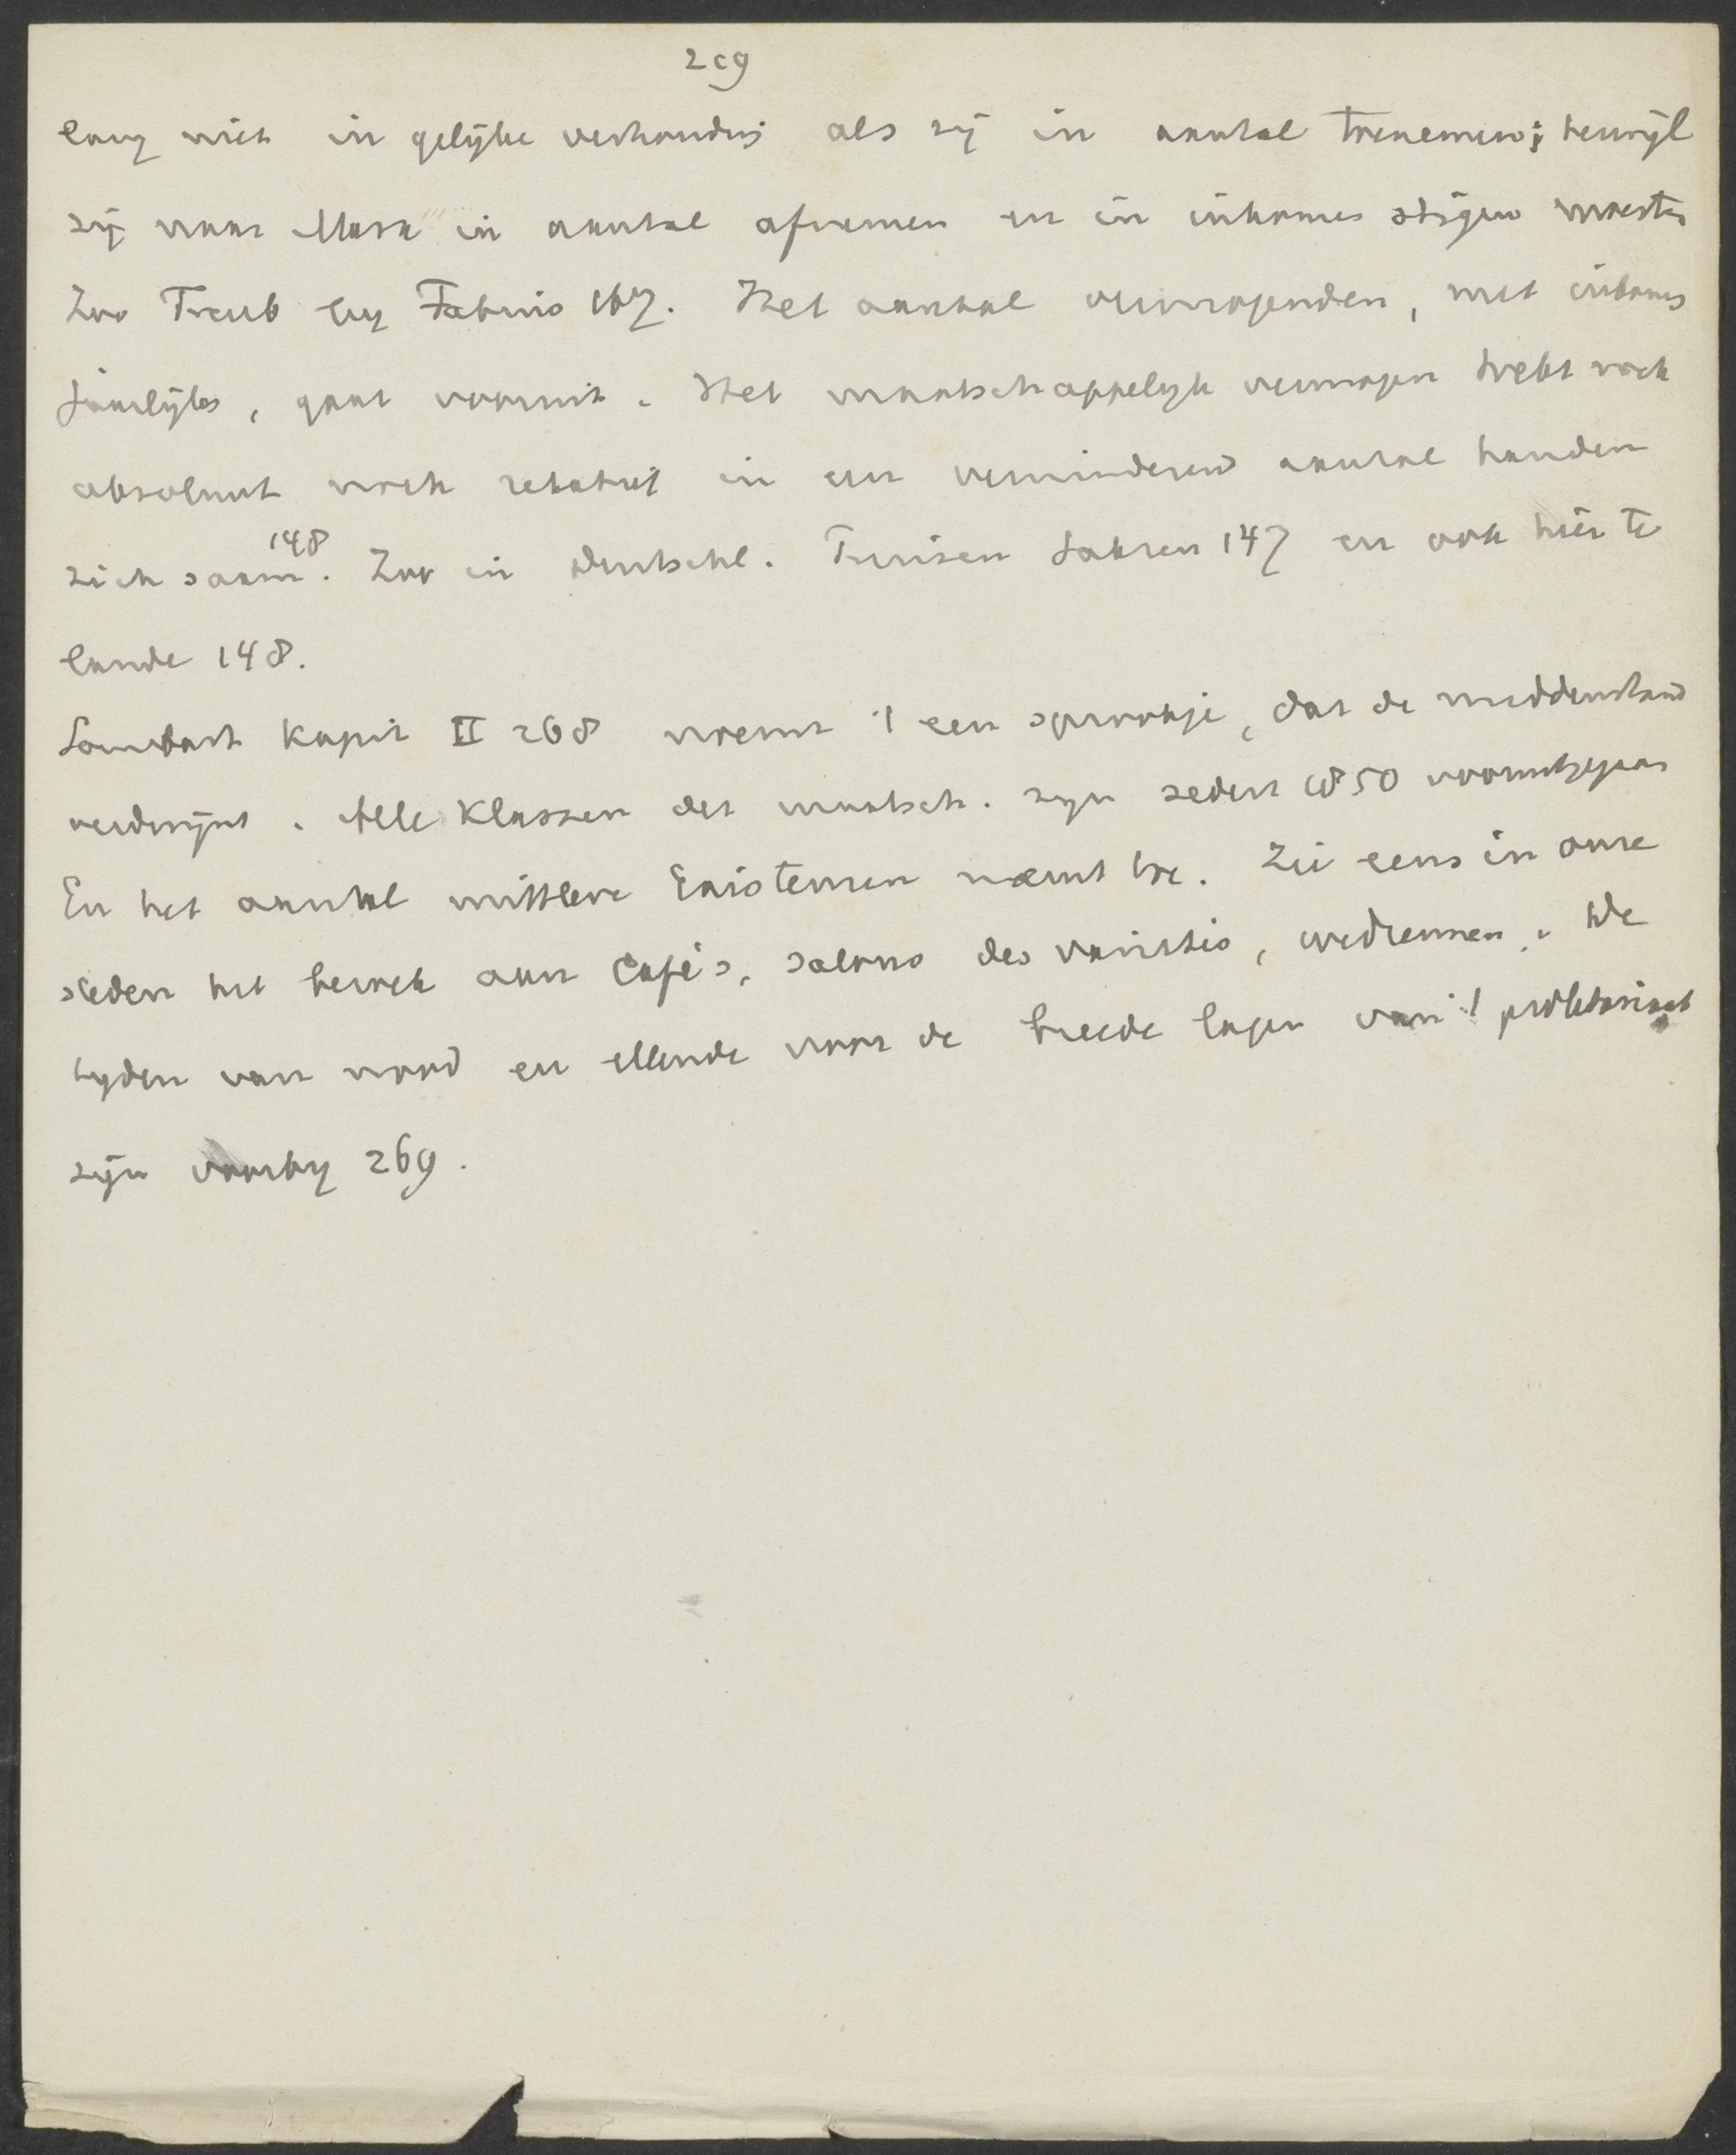 209
lang niet in gelijke verhoudng als zij in aantal toenemen; terwijl
zij naar Marx in aantal afnemen en in inkomen stijgen moesten
Zoo Treub by Fabius 167. Het aantal vermogenden, met inkomen
jaarlijks, gaat vooruit. Het maatschappelyk vermogen trekt noch
absoluut noch relatief in een verminderend aantal handen
zich saam 148. Zoo in Duitschl. Pruisen Saksen 147 en ook hier te
lande 148.
Sombart Kapit II 268 noemt 't een sprookje, dat de middenstand
verdwijnt. Alle Klassen der maatsch. zyn sedert 1850 vooruitgegaan
En het aantal mittlere Existenzen neemt toe. Zie eens in onze
steden het bezoek aan Cafés, salons des variétés, wedrennen. De
tyden van nood en ellende voor de breede lagen van 't proletariaat
zijn voorby 269.